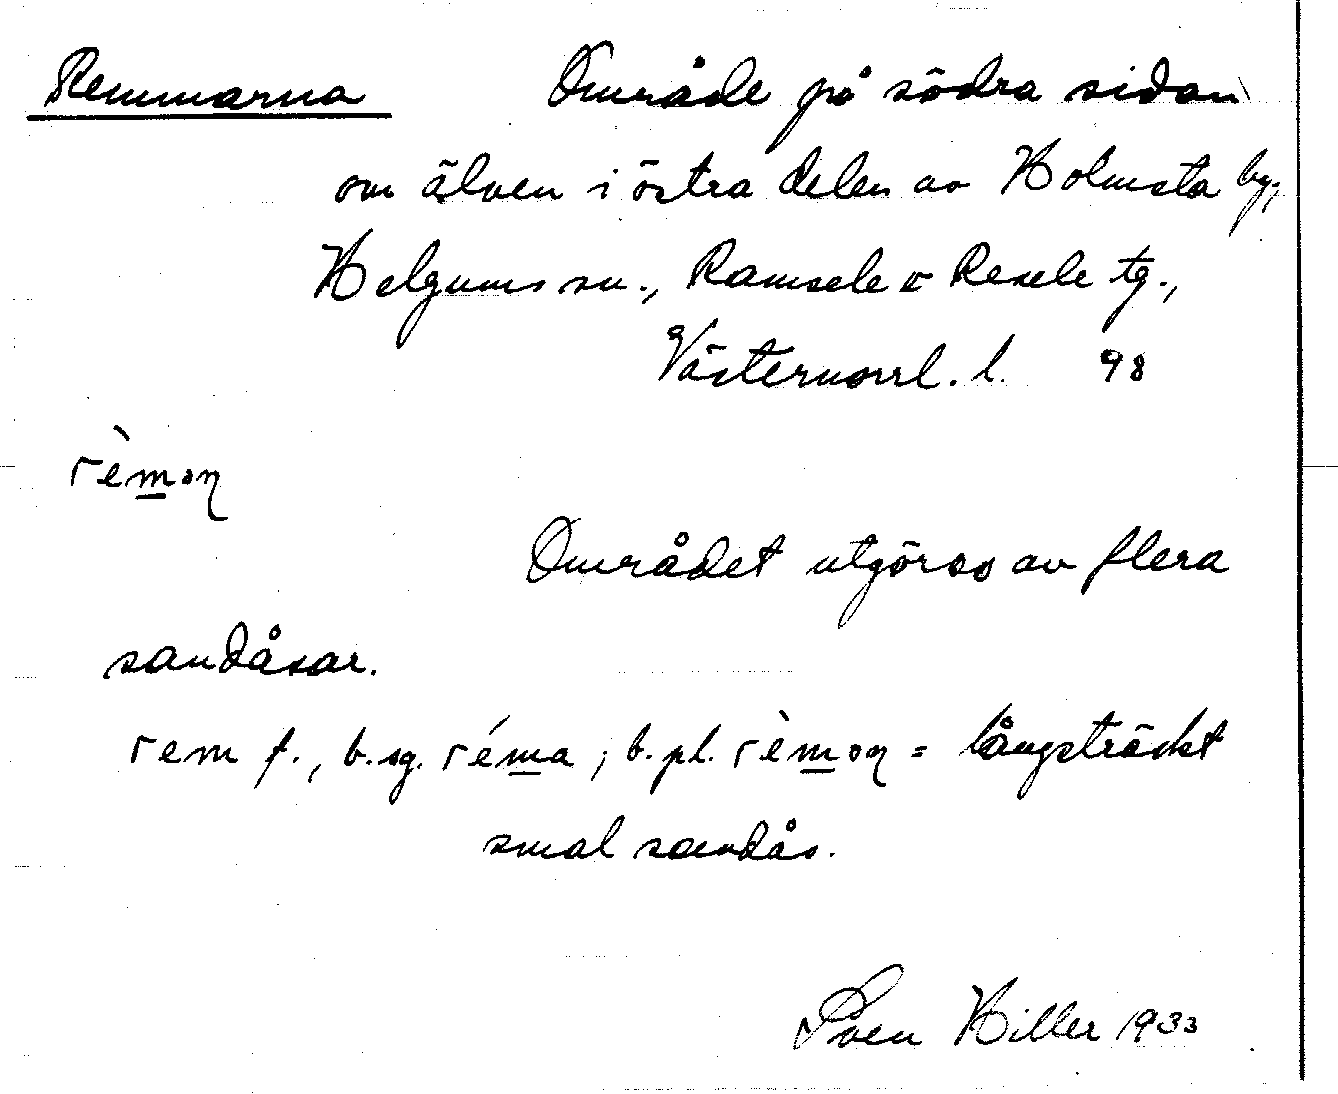 Remmarna Område på södra sidan
om älven i östra delen av Holmsta by,
Helgums sn., Ramsele o Resele tg.,
Västernorrl. l. 98
rèmon
Området utgöres av flera
sandåsar.
rem f., b.sg. réma; b.pl. rèmon = långsträckt
smal sandås.
Sven Hiller 1933